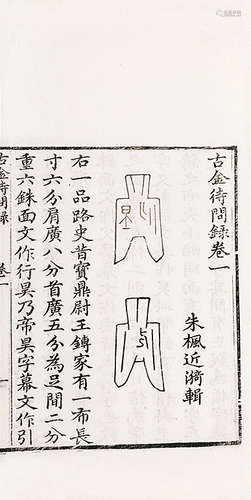 古金待問錄卷一
朱楓近漪輯
右一品路史昔寶鼎尉王鏄家有一布長
寸六分肩廣八分首廣五分為足間二分
重六銖面文作行昊乃帝昊字幕文作引
古金待問錄 卷一